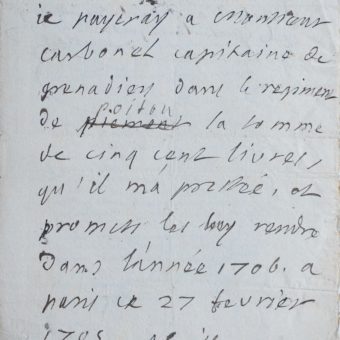 ie payeray a monsieur
carbonel capitaine de
grenadiers dans le regiment
poitou
de piemont la somme
de cinq cent livres,
qu'il m'a prestée, et
promets les luy rendre
dans l'année 1706. a
paris ce 27 fevrier